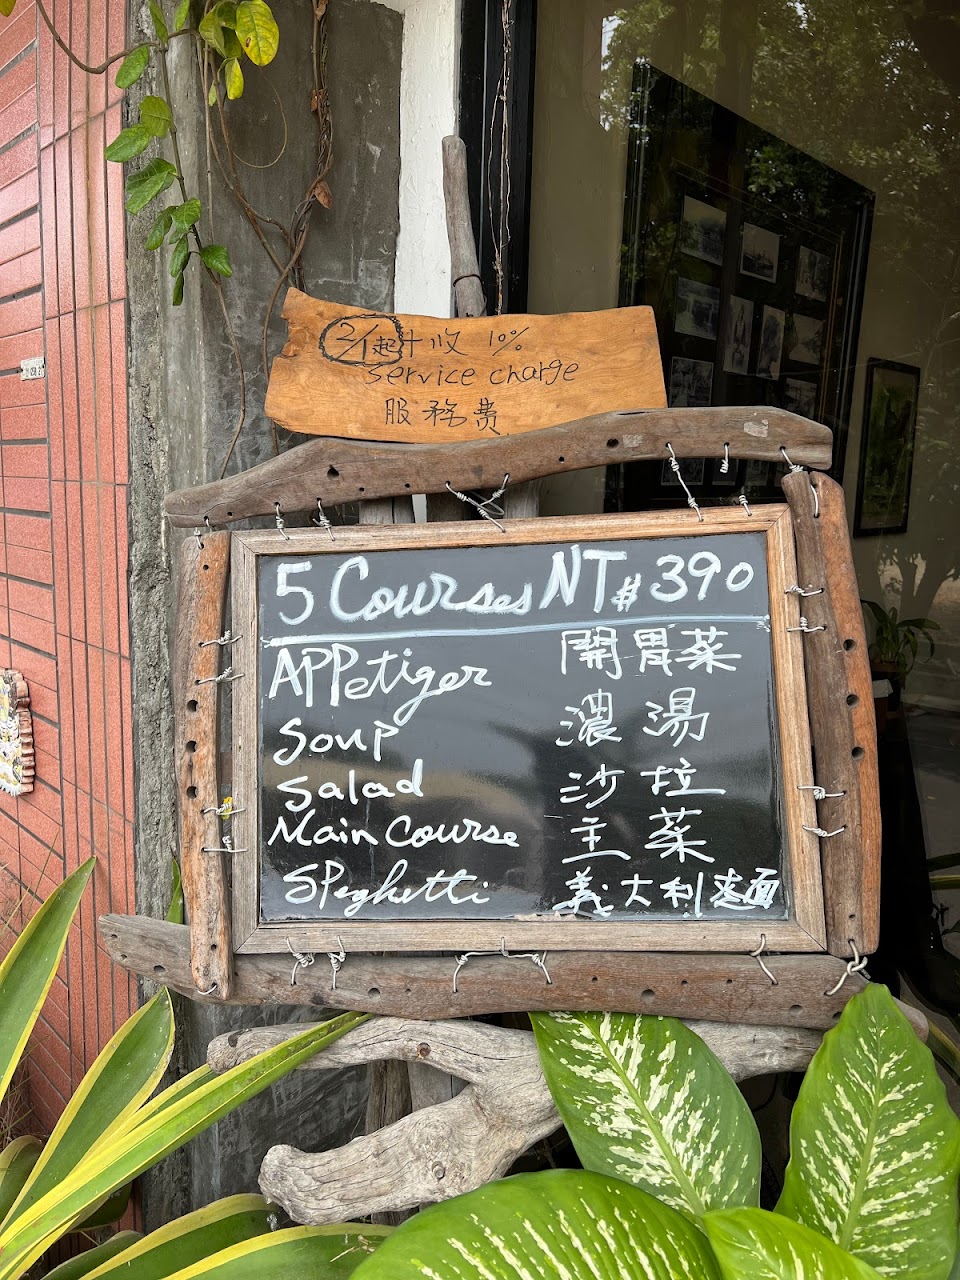 2/1起 十收 10%
service charge
服務費
5 Courses NT# 390
APPetiger 開胃菜
Soup 濃湯
Salad 沙拉
Main Course 主菜
SPeghetti 義大利麵